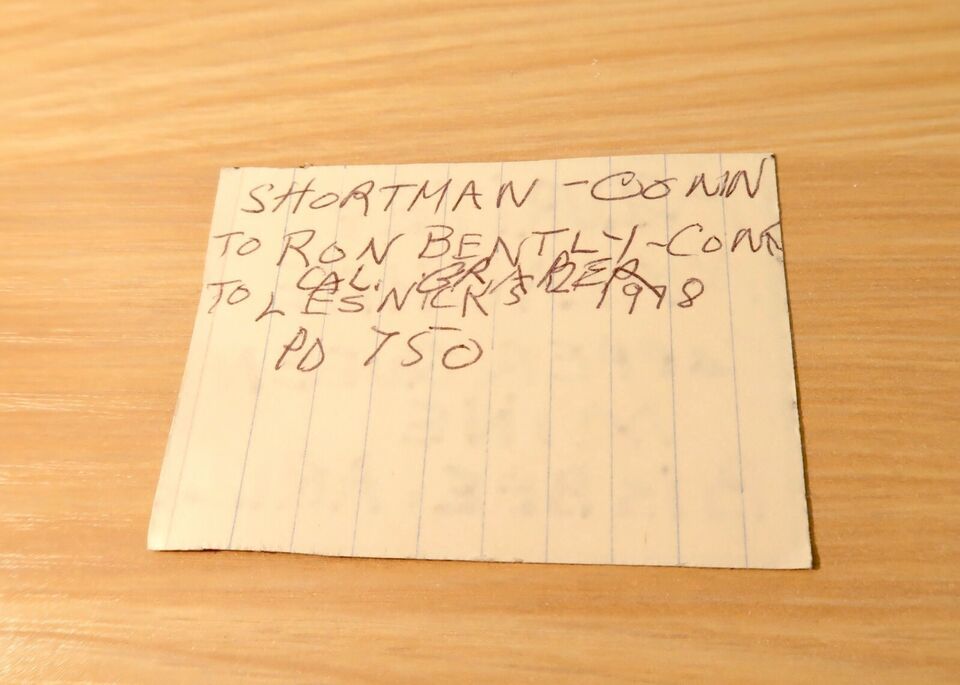 SHORTMAN - CONN
TO RON BENTLY - CONN
CAL. GRABER
TO LESNICKS 1978
PD 750